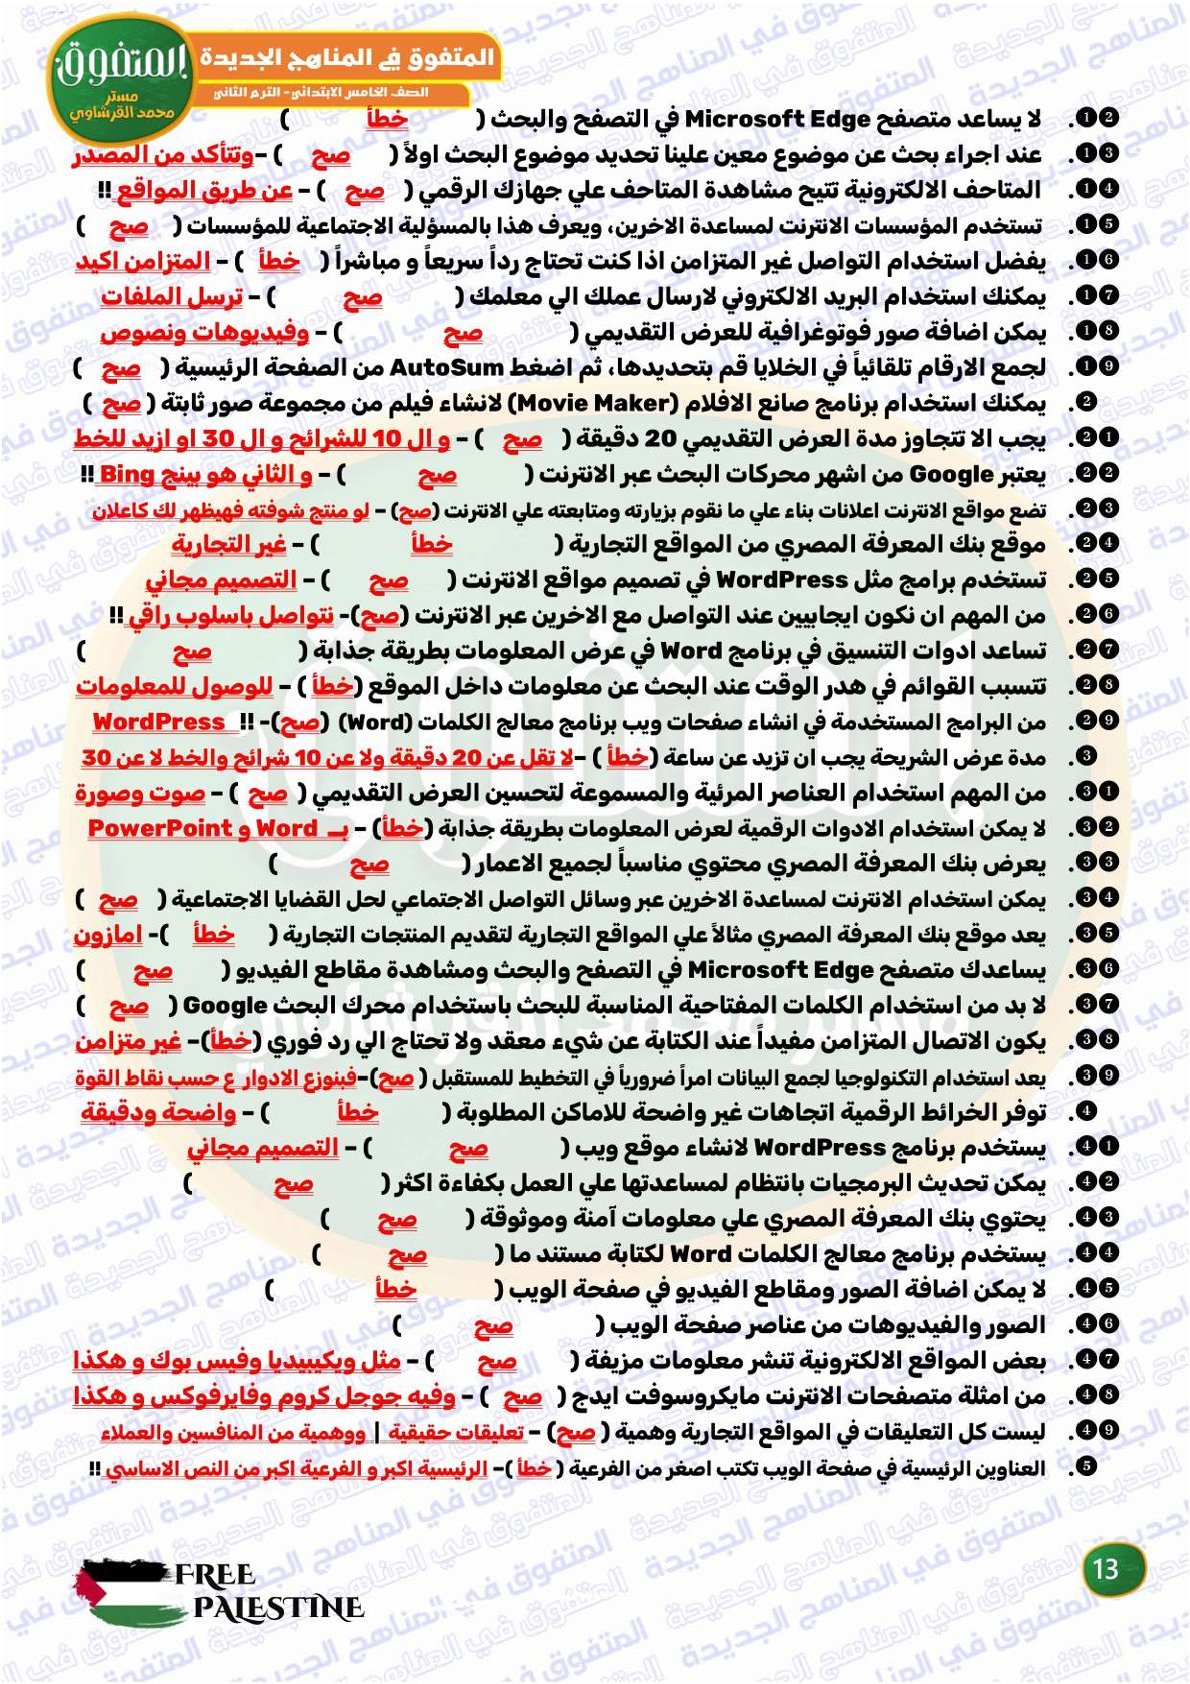 المتفوق
مستر
محمد القرشاوي
المتفوق في المناهج الجديدة
الصف الخامس الابتدائي- الترم الثاني
12. لا يساعد متصفح Microsoft Edge في التصفح والبحث ( خطأ )
13. عند اجراء بحث عن موضوع معين علينا تحديد موضوع البحث اولاً ( صح ) –وتتأكد من المصدر
14. المتاحف الالكترونية تتيح مشاهدة المتاحف علي جهازك الرقمي ( صح ) – عن طريق المواقع !!
15. تستخدم المؤسسات الانترنت لمساعدة الاخرين، ويعرف هذا بالمسؤلية الاجتماعية للمؤسسات ( صح )
16. يفضل استخدام التواصل غير المتزامن اذا كنت تحتاج رداً سريعاً و مباشراً ( خطأ ) – المتزامن اكيد
17. يمكنك استخدام البريد الالكتروني لارسال عملك الي معلمك ( صح ) – ترسل الملفات
18. يمكن اضافة صور فوتوغرافية للعرض التقديمي ( صح ) – وفيديوهات ونصوص
19. لجمع الارقام تلقائياً في الخلايا قم بتحديدها، ثم اضغط AutoSum من الصفحة الرئيسية ( صح )
2. يمكنك استخدام برنامج صانع الافلام (Movie Maker) لانشاء فيلم من مجموعة صور ثابتة ( صح )
21. يجب الا تتجاوز مدة العرض التقديمي 20 دقيقة ( صح ) – و ال 10 للشرائح و ال 30 او ازيد للخط
22. يعتبر Google من اشهر محركات البحث عبر الانترنت ( صح ) – و الثاني هو بينج Bing !!
23. تضع مواقع الانترنت اعلانات بناء علي ما نقوم بزيارته ومتابعته علي الانترنت (صح) – لو منتج شوفته فهيظهر لك كاعلان
24. موقع بنك المعرفة المصري من المواقع التجارية ( خطأ ) – غير التجارية
25. تستخدم برامج مثل WordPress في تصميم مواقع الانترنت ( صح ) – التصميم مجاني
26. من المهم ان نكون ايجابيين عند التواصل مع الاخرين عبر الانترنت (صح)- نتواصل باسلوب راقي !!
27. تساعد ادوات التنسيق في برنامج Word في عرض المعلومات بطريقة جذابة ( صح )
28. تتسبب القوائم في هدر الوقت عند البحث عن معلومات داخل الموقع (خطأ ) – للوصول للمعلومات
29. من البرامج المستخدمة في انشاء صفحات ويب برنامج معالج الكلمات (Word) (صح)- !! WordPress
3. مدة عرض الشريحة يجب ان تزيد عن ساعة (خطأ ) –لا تقل عن 20 دقيقة ولا عن 10 شرائح والخط لا عن 30
31. من المهم استخدام العناصر المرئية والمسموعة لتحسين العرض التقديمي ( صح ) – صوت وصورة
32. لا يمكن استخدام الادوات الرقمية لعرض المعلومات بطريقة جذابة (خطأ) – بـ Word و PowerPoint
33. يعرض بنك المعرفة المصري محتوي مناسباً لجميع الاعمار ( صح )
34. يمكن استخدام الانترنت لمساعدة الاخرين عبر وسائل التواصل الاجتماعي لحل القضايا الاجتماعية ( صح )
35. يعد موقع بنك المعرفة المصري مثالاً علي المواقع التجارية لتقديم المنتجات التجارية ( خطأ )- امازون
36. يساعدك متصفح Microsoft Edge في التصفح والبحث ومشاهدة مقاطع الفيديو ( صح )
37. لا بد من استخدام الكلمات المفتاحية المناسبة للبحث باستخدام محرك البحث Google ( صح )
38. يكون الاتصال المتزامن مفيداً عند الكتابة عن شيء معقد ولا تحتاج الي رد فوري (خطأ)- غير متزامن
39. يعد استخدام التكنولوجيا لجمع البيانات امراً ضرورياً في التخطيط للمستقبل ( صح)–فبنوزع الادوار ع حسب نقاط القوة
4. توفر الخرائط الرقمية اتجاهات غير واضحة للاماكن المطلوبة ( خطأ ) – واضحة ودقيقة
41. يستخدم برنامج WordPress لانشاء موقع ويب ( صح ) – التصميم مجاني
42. يمكن تحديث البرمجيات بانتظام لمساعدتها علي العمل بكفاءة اكثر ( صح )
43. يحتوي بنك المعرفة المصري علي معلومات آمنة وموثوقة ( صح )
44. يستخدم برنامج معالج الكلمات Word لكتابة مستند ما ( صح )
45. لا يمكن اضافة الصور ومقاطع الفيديو في صفحة الويب ( خطأ )
46. الصور والفيديوهات من عناصر صفحة الويب ( صح )
47. بعض المواقع الالكترونية تنشر معلومات مزيفة ( صح ) – مثل ويكيبيديا وفيس بوك و هكذا
48. من امثلة متصفحات الانترنت مايكروسوفت ايدج ( صح ) – وفيه جوجل كروم وفايرفوكس و هكذا
49. ليست كل التعليقات في المواقع التجارية وهمية ( صح) – تعليقات حقيقية | ووهمية من المنافسين والعملاء
5. العناوين الرئيسية في صفحة الويب تكتب اصغر من الفرعية ( خطأ )– الرئيسية اكبر و الفرعية اكبر من النص الاساسي !!
FREE
PALESTINE
13